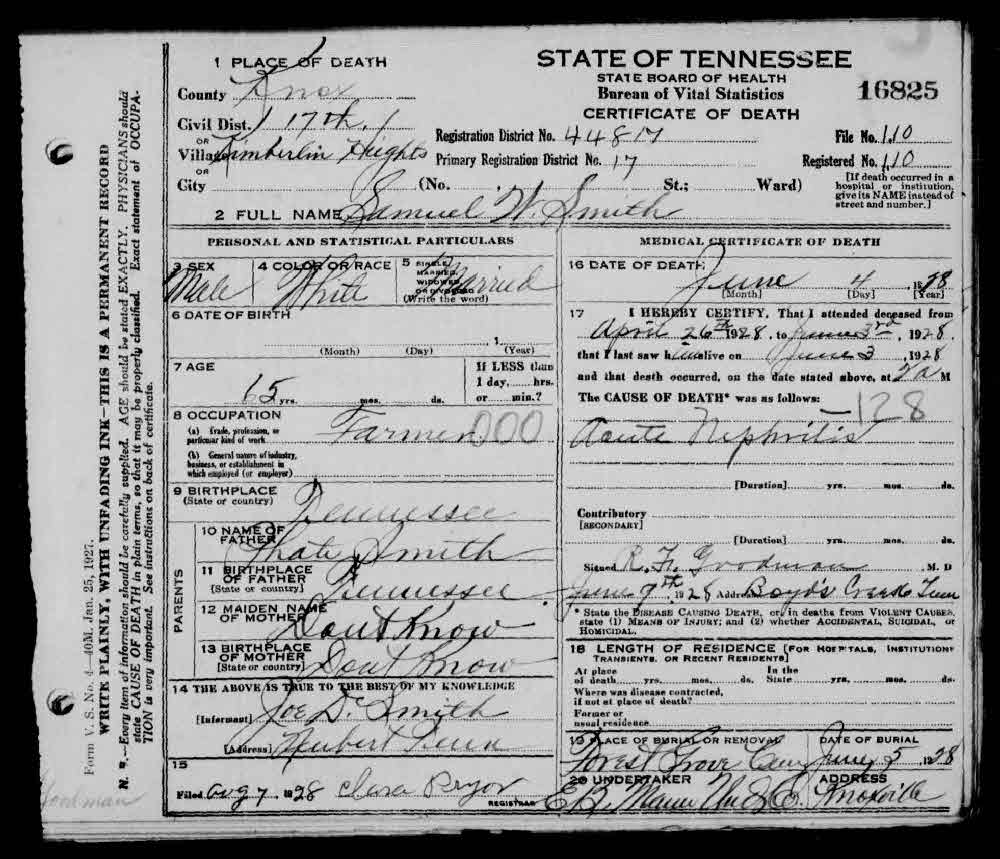 1 PLACE OF DEATH
County Knox
Civil Dist. 17th
OR
Village Kimberlin Heights
OR
City (No. St.; Ward)
STATE OF TENNESSEE
STATE BOARD OF HEALTH
Bureau of Vital Statistics
CERTIFICATE OF DEATH
16825
Registration District No. 44817
File No. 110
Primary Registration District No. 17
Registered No. 110
[If death occurred in a
hospital or institution,
give its NAME instead of
street and number.]
2 FULL NAME Samuel W. Smith
PERSONAL AND STATISTICAL PARTICULARS
3 SEX
Male
4 COLOR OR RACE
White
5 SINGLE,
MARRIED,
WIDOWED,
OR DIVORCED
(Write the word)
Married
6 DATE OF BIRTH
, 1
(Month) (Day) (Year)
7 AGE
65 yrs. mos. ds.
If LESS than
1 day, hrs.
or min.?
8 OCCUPATION
(a) Trade, profession, or
particular kind of work
Farmer 000
(b) General nature of industry,
business, or establishment in
which employed (or employer)
9 BIRTHPLACE
(State or country)
Tennessee
PARENTS
10 NAME OF
FATHER
Smith
11 BIRTHPLACE
OF FATHER
[State or country]
Tennessee
12 MAIDEN NAME
OF MOTHER
Dont Know
13 BIRTHPLACE
OF MOTHER
[State or country]
Dont Know
14 THE ABOVE IS TRUE TO THE BEST OF MY KNOWLEDGE
[Informant] Joe D. Smith
[Address] Tenn
15
Filed Aug 7 1928 Clara Pryor
REGISTRAR
MEDICAL CERTIFICATE OF DEATH
16 DATE OF DEATH
June 4 1928
[Month] [Day] [Year]
17 I HEREBY CERTIFY, That I attended deceased from
April 26th 1928, to June 3rd, 1928
that I last saw him alive on June 3, 1928
and that death occurred, on the date stated above, at M
The CAUSE OF DEATH* was as follows:
128
Acute Nephritis
[Duration] yrs. mos. ds.
Contributory
[SECONDARY]
[Duration] yrs. mos. ds.
Signed R. F. Goodman M. D
June 7th 1928 Address Boyds Creek Tenn
* State the DISEASE CAUSING DEATH, or, in deaths from VIOLENT CAUSES,
state (1) MEANS OF INJURY; and (2) whether ACCIDENTAL, SUICIDAL, or
HOMICIDAL.
18 LENGTH OF RESIDENCE [FOR HOSPITALS, INSTITUTIONS
TRANSIENTS, OR RECENT RESIDENTS]
At place In the
of death yrs. mos. ds. State yrs. mos. ds.
Where was disease contracted,
if not at place of death?
Former or
usual residence
19 PLACE OF BURIAL OR REMOVAL
Forest Grove Cem
DATE OF BURIAL
June 5 1928
20 UNDERTAKER
E. B. Mann Und Co.
ADDRESS
Knoxville
Form V. S. No. 4—40M. Jan. 25, 1927.
WRITE PLAINLY, WITH UNFADING INK—THIS IS A PERMANENT RECORD
N. B.—Every item of information should be carefully supplied. AGE should be stated EXACTLY. PHYSICIANS should
state CAUSE OF DEATH in plain terms, so that it may be properly classified. Exact statement of OCCUPA-
TION is very important. See instructions on back of certificate.
Goodman